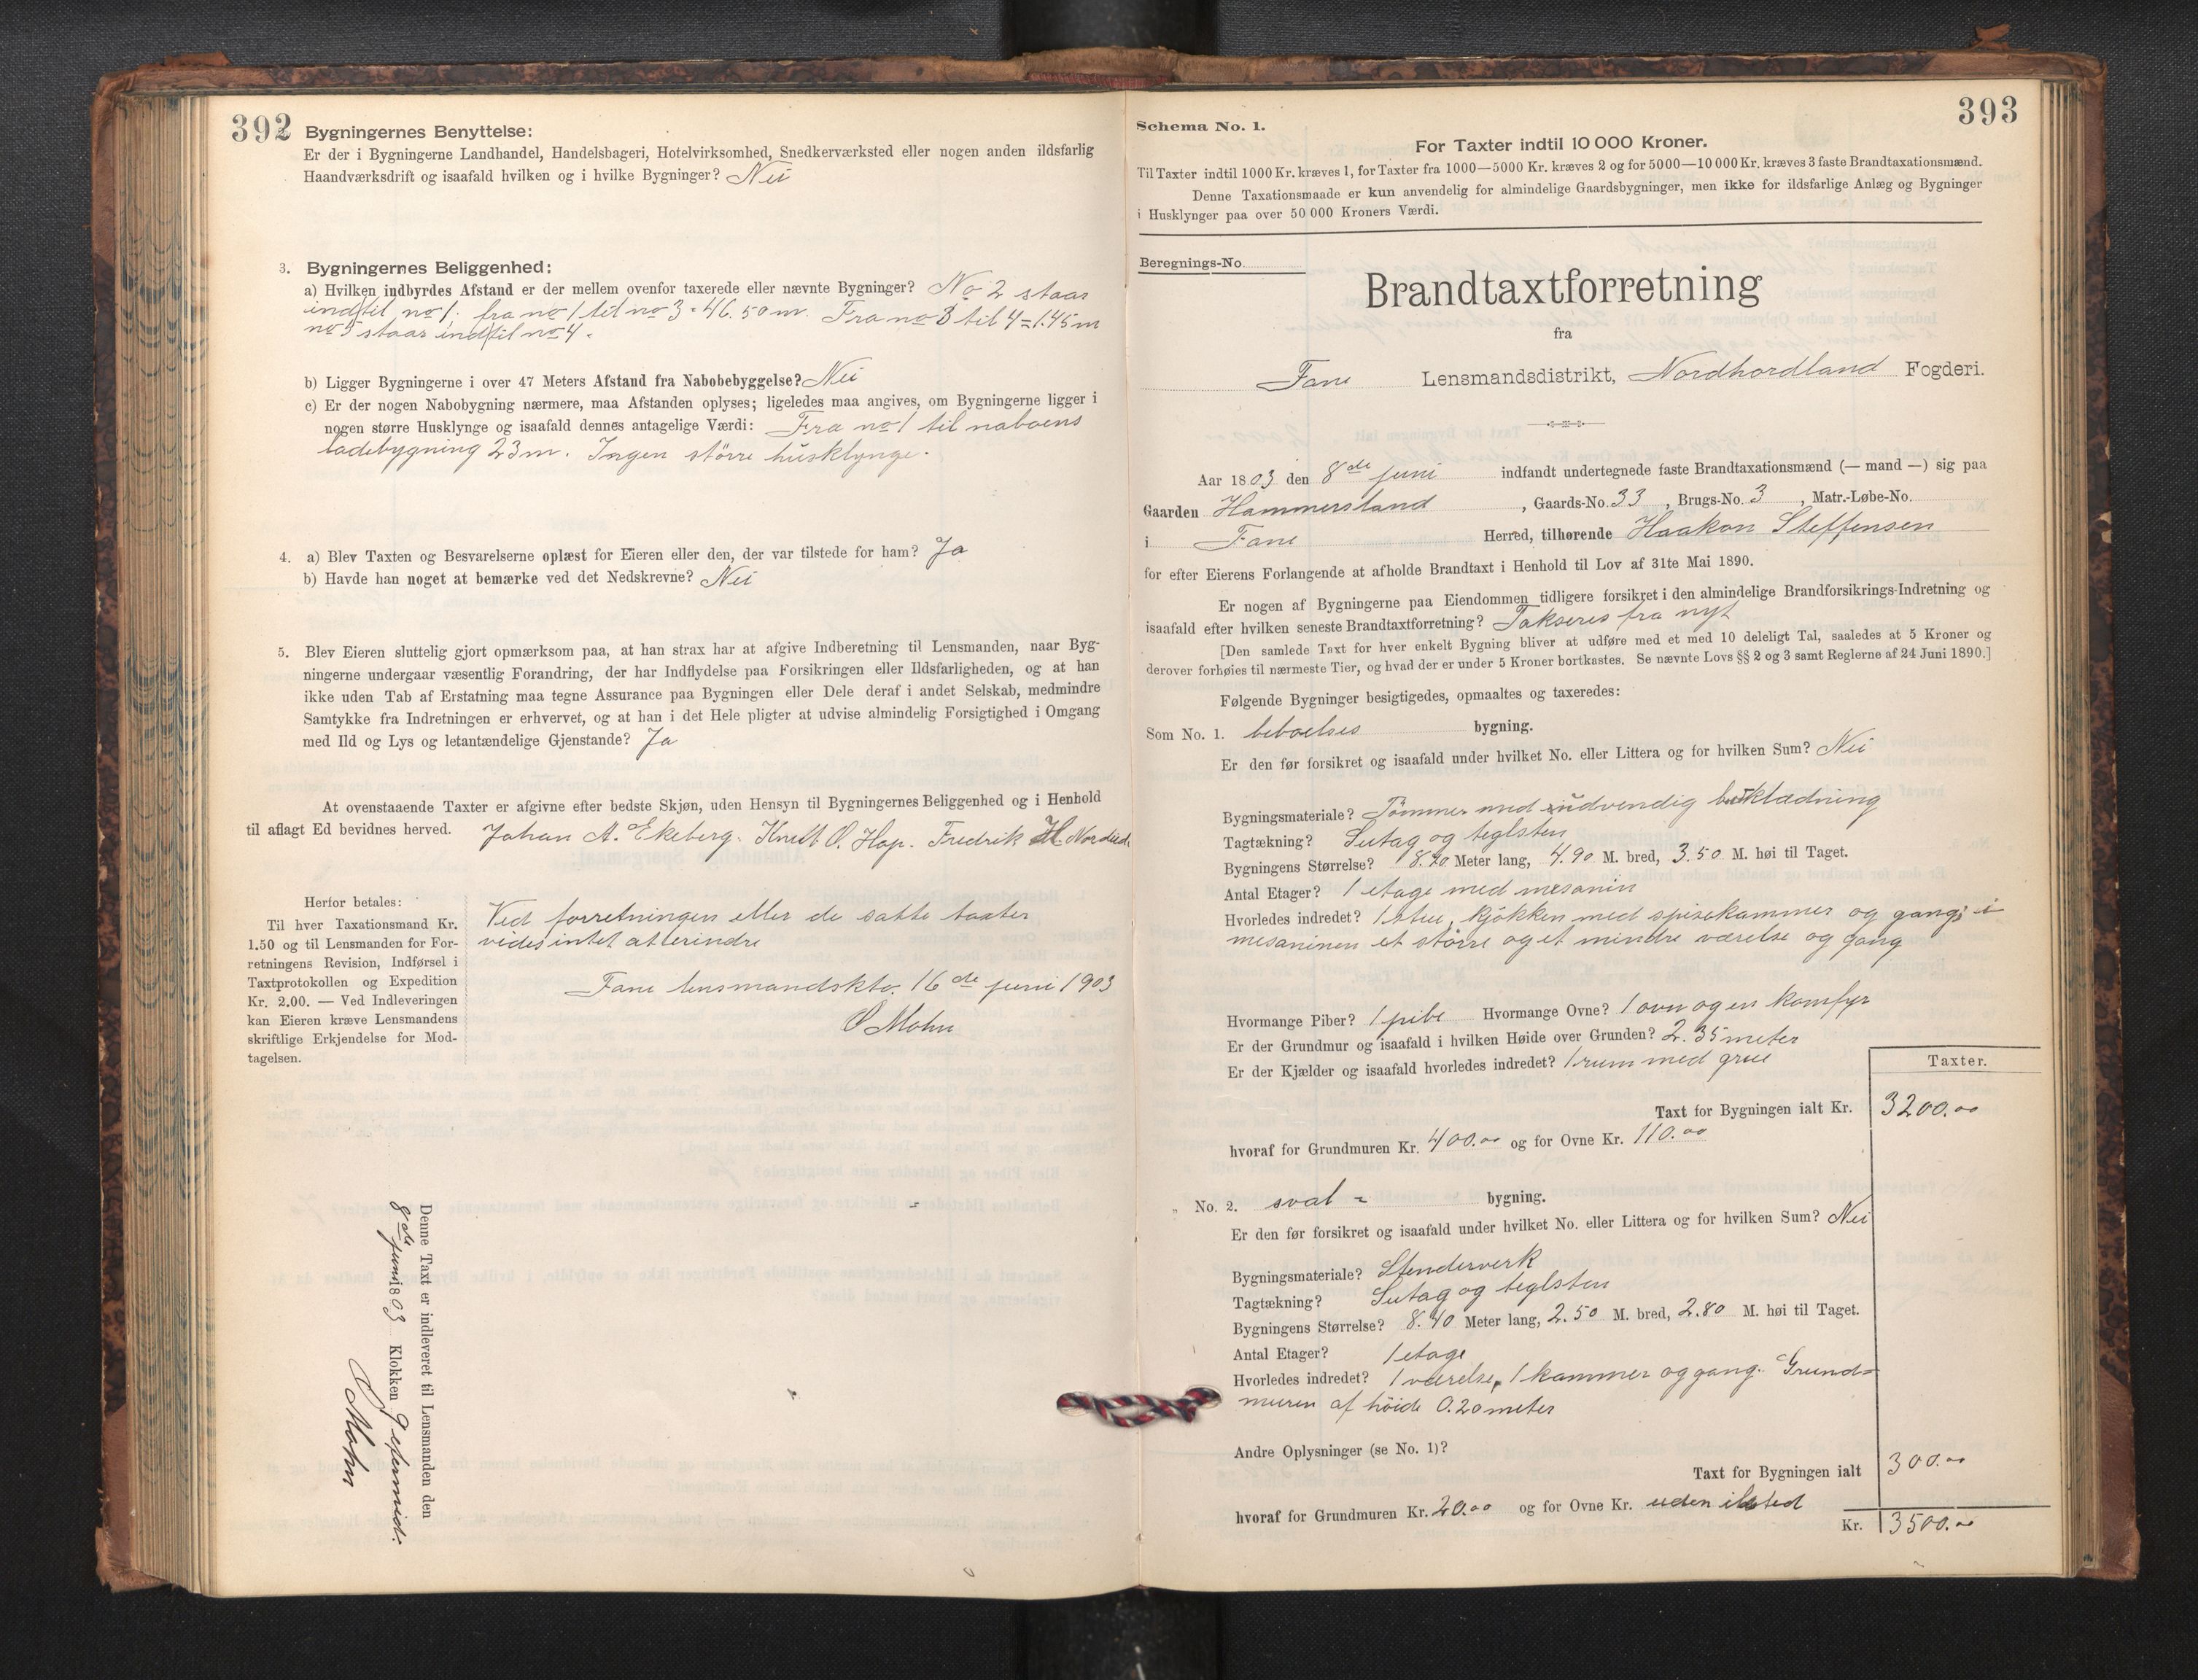 392
Bygningernes Benyttelse:
Er der i Bygningerne Landhandel, Handelsbageri, Hotelvirksomhed, Snedkerværksted eller nogen anden ildsfarlig
Haandværksdrift og isaafald hvilken og i hvilke Bygninger? Nei
3. Bygningernes Beliggenhed:
a) Hvilken indbyrdes Afstand er der mellem ovenfor taxerede eller nævnte Bygninger? No 2 staar
indtil no 1. fra no 1 til no 3 = 46.50 m. Fra no 3 til 4 = 1.45 m
no 5 staar indtil no 4.
b) Ligger Bygningerne i over 47 Meters Afstand fra Nabobebyggelse? Nei
c) Er der nogen Nabobygning nærmere, maa Afstanden oplyses; ligeledes maa angives, om Bygningerne ligger i
nogen større Husklynge og isaafald dennes antagelige Værdi: Fra no 1 til naboens
ladebygning 23 m. Ingen större husklynge.
4. a) Blev Taxten og Besvarelserne oplæst for Eieren eller den, der var tilstede for ham? Ja
b) Havde han noget at bemærke ved det Nedskrevne? Nei
5. Blev Eieren sluttelig gjort opmærksom paa, at han strax har at afgive Indberetning til Lensmanden, naar Byg-
ningerne undergaar væsentlig Forandring, der har Indflydelse paa Forsikringen eller Ildsfarligheden, og at han
ikke uden Tab af Erstatning maa tegne Assurance paa Bygningen eller Dele deraf i andet Selskab, medmindre
Samtykke fra Indretningen er erhvervet, og at han i det Hele pligter at udvise almindelig Forsigtighed i Omgang
med Ild og Lys og letantændelige Gjenstande? Ja
At ovenstaaende Taxter er afgivne efter bedste Skjøn, uden Hensyn til Bygningernes Beliggenhed og i Henhold
til aflagt Ed bevidnes herved. Johan A. Ekeberg. Knut O. Hop. Fredrik H.
Herfor betales:
Til hver Taxationsmand Kr.
1.50 og til Lensmanden for For-
retningens Revision, Indførsel i
Taxtprotokollen og Expedition
Kr. 2.00. — Ved Indleveringen
kan Eieren kræve Lensmandens
skriftlige Erkjendelse for Mod-
tagelsen.
Ved forretningen eller de satte taxter
vides intet at erindre
Fane lensmandsktr. 16de juni 1903
O Mohn
Denne Taxt er indleveret til Lensmanden den
8de juni 1803 Klokken 9 efermid.
O Mohn
393
Schema No. 1.
For Taxter indtil 10 000 Kroner.
Til Taxter indtil 1000 Kr. kræves 1, for Taxter fra 1000—5000 Kr. kræves 2 og for 5000—10 000 Kr. kræves 3 faste Brandtaxationsmænd.
Denne Taxationsmaade er kun anvendelig for almindelige Gaardsbygninger, men ikke for ildsfarlige Anlæg og Bygninger
i Husklynger paa over 50 000 Kroners Værdi.
Beregnings-No
Brandtaxtforretning
fra
Fane Lensmandsdistrikt, Nordhordland Fogderi.
Aar 1803 den 8de juni indfandt undertegnede faste Brandtaxationsmænd (— mand —) sig paa
Gaarden Hammersland, Gaards-No. 33, Brugs-No. 3, Matr.-Løbe-No.
i Fane Herred, tilhørende Haakon Steffensen
for efter Eierens Forlangende at afholde Brandtaxt i Henhold til Lov af 31te Mai 1890.
Er nogen af Bygningerne paa Eiendommen tidligere forsikret i den almindelige Brandforsikrings-Indretning og
isaafald efter hvilken seneste Brandtaxtforretning? Takseres fra nyt
[Den samlede Taxt for hver enkelt Bygning bliver at udføre med et med 10 deleligt Tal, saaledes at 5 Kroner og
derover forhøies til nærmeste Tier, og hvad der er under 5 Kroner bortkastes. Se nævnte Lovs §§ 2 og 3 samt Reglerne af 24 Juni 1890.]
Følgende Bygninger besigtigedes, opmaaltes og taxeredes:
Som No. 1. beboelses bygning.
Er den før forsikret og isaafald under hvilket No. eller Littera og for hvilken Sum? Nei
Bygningsmateriale? Tömmer med udvendig beklædning
Tagtækning? Sutag og teglsten
Bygningens Størrelse? 8.40 Meter lang, 4.90 M. bred, 3.50 M. høi til Taget.
Antal Etager? 1 etage med mesanin
Hvorledes indredet? 1 stue, kjökken med spisekammer og gang; i
mesaninen et större og et mindre værelse og gang
Hvormange Piber? 1 pibe Hvormange Ovne? 1 ovn og en komfyr
Er der Grundmur og isaafald i hvilken Høide over Grunden? 2.35 meter
Er der Kjælder og isaafald hvorledes indredet? 1 rum med grue
Taxter.
Taxt for Bygningen ialt Kr. 3200.00
hvoraf for Grundmuren Kr. 400.00 og for Ovne Kr. 110.00
„ No. 2. sval = bygning.
Er den før forsikret og isaafald under hvilket No. eller Littera og for hvilken Sum? Nei
Bygningsmateriale? Stenderverk
Tagtækning? Sutag og teglsten
Bygningens Størrelse? 8.40 Meter lang, 2.50 M. bred, 2.80 M. høi til Taget.
Antal Etager? 1 etage
Hvorledes indredet? 1 værelse, 1 kammer og gang. Grund=
muren af höide 0.20 meter
Andre Oplysninger (se No. 1)?
Taxt for Bygningen ialt 300.00
hvoraf for Grundmuren Kr. 20.00 og for Ovne Kr. uden ilsted
Kr. 3500.00